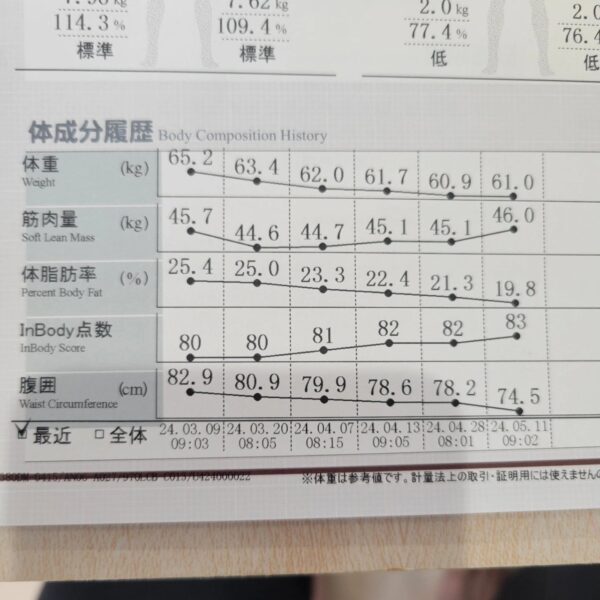 114.3 % 109.4 % 77.4 %
標準 標準 低
2.0 kg
体成分履歴 Body Composition History
体重 (kg) 65.2 63.4 62.0 61.7 60.9 61.0
Weight
筋肉量 (kg) 45.7 44.6 44.7 45.1 45.1 46.0
Soft Lean Mass
体脂肪率 (%) 25.4 25.0 23.3 22.4 21.3 19.8
Percent Body Fat
InBody点数 80 80 81 82 82 83
InBody Score
腹囲 (cm) 82.9 80.9 79.9 78.6 78.2 74.5
Waist Circumference
最近 全体 24.03.09 24.03.20 24.04.07 24.04.13 24.04.28 24.05.11
09:03 08:05 08:15 09:05 08:01 09:02
※体重は参考値です。計量法上の取引・証明用には使えません